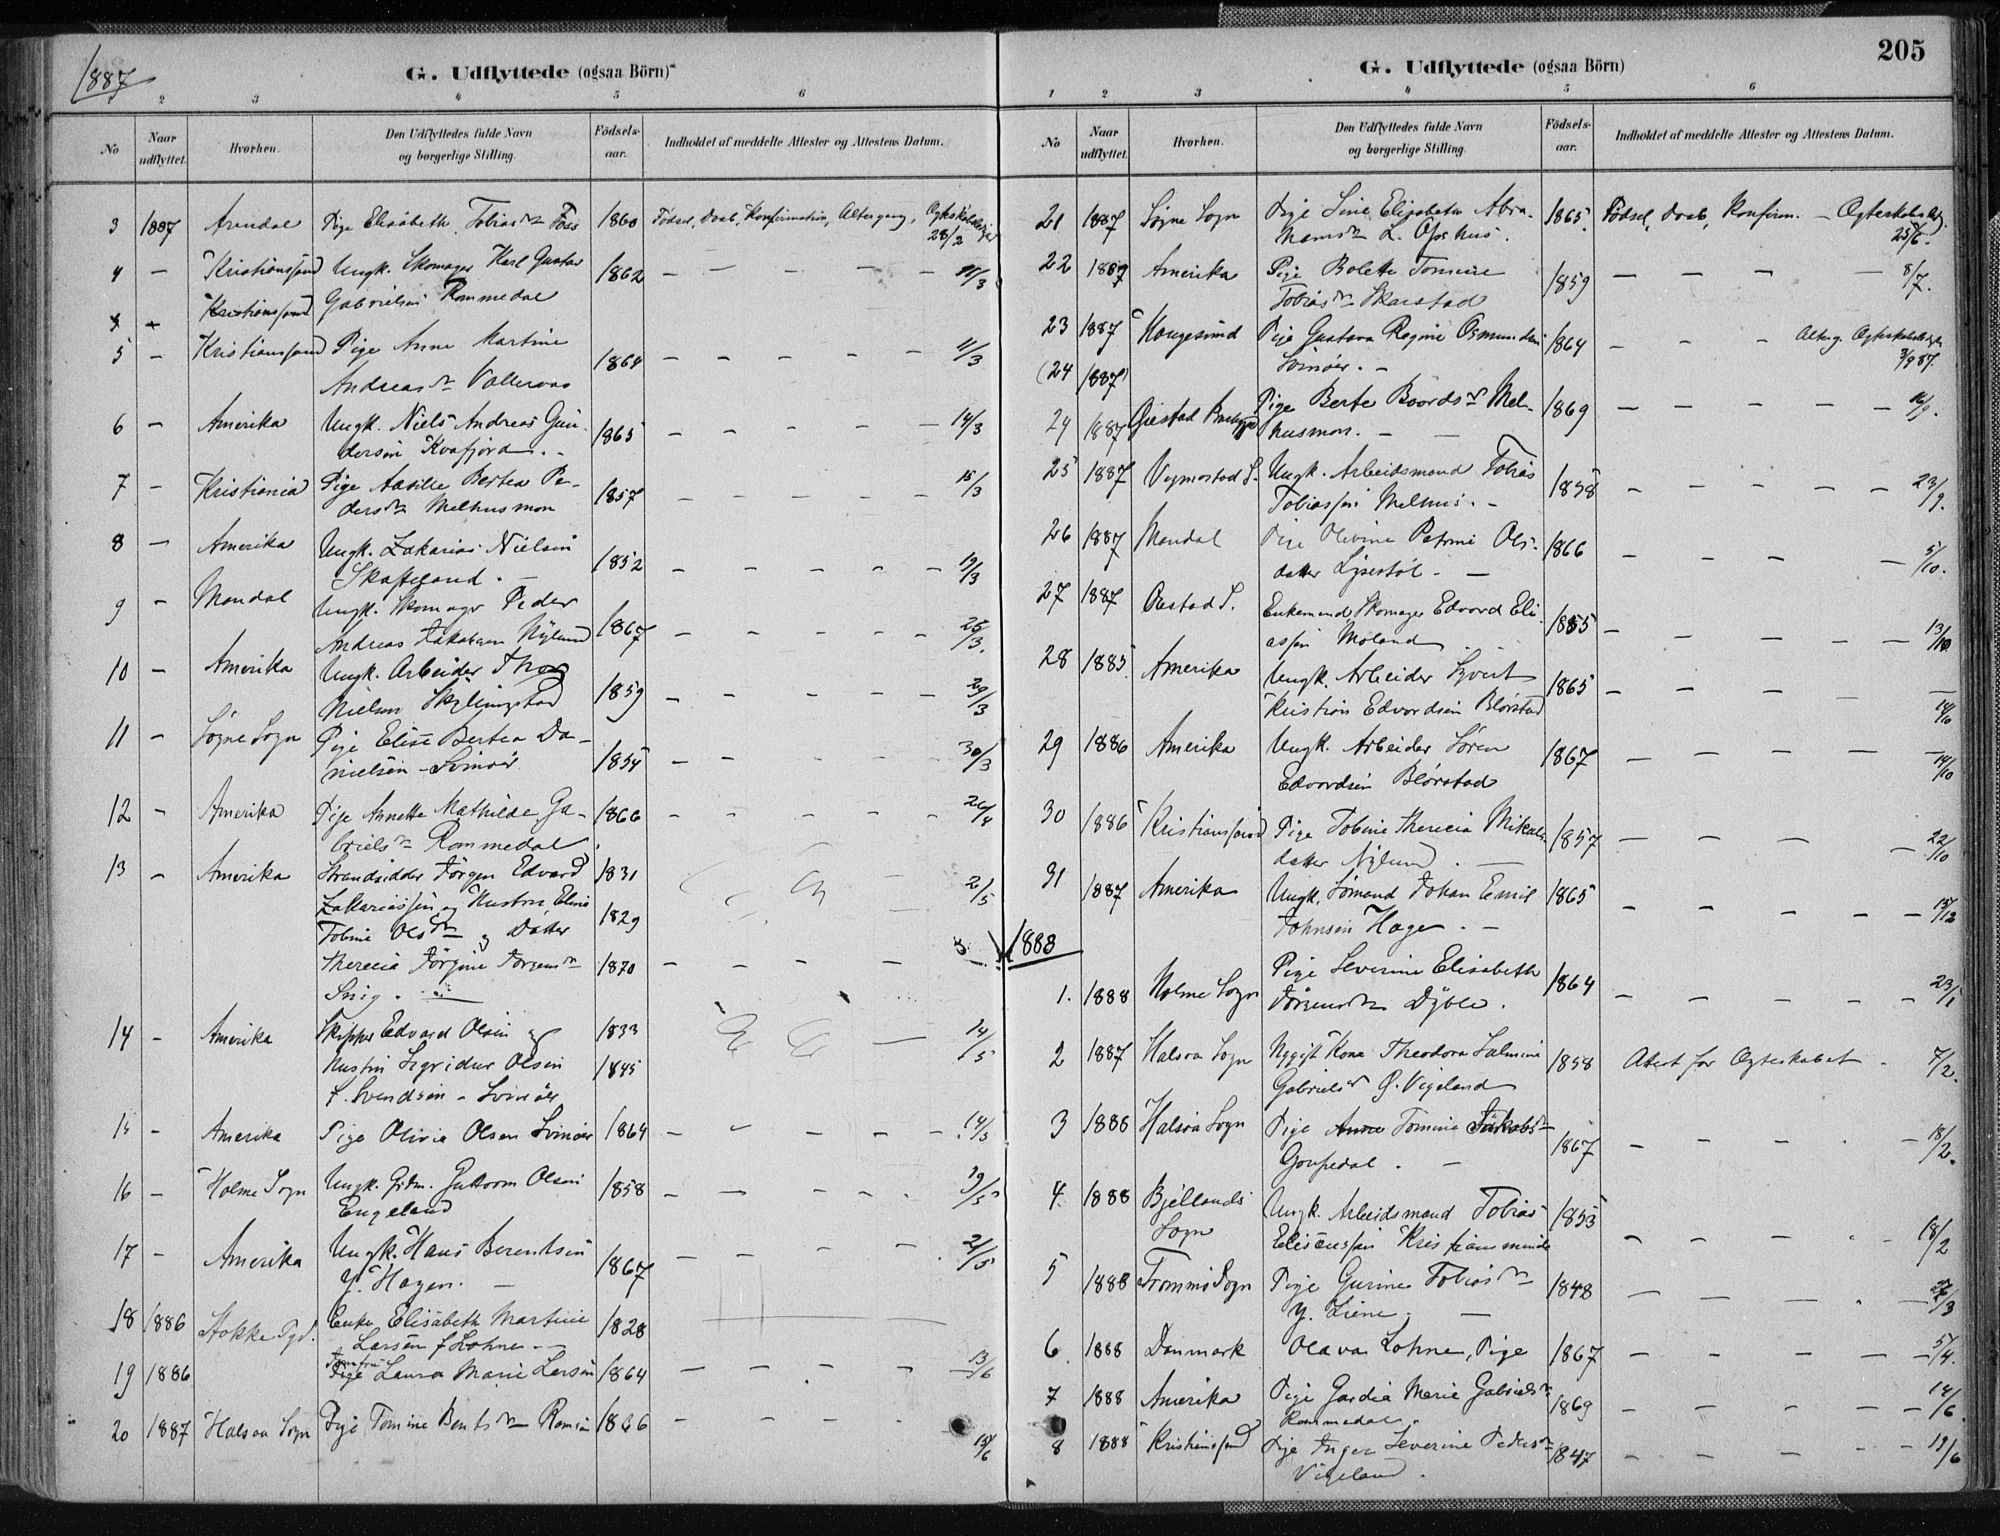 1887
G. Udflyttede (ogsaa Börn)
1 2 3 4 5 6
No
Naar udflyttet.
Hvorhen.
Den Udflyttedes fulde Navn og borgerlige Stilling.
Födsels-aar.
Indholdet af meddelte Attester og Attestens Datum.
3 1887 Arendal Pige Elisabeth Tobiasdr 1860 Födsel, Daab, Konfirmation, Altergang, 28/2
4 — Kristianssand Ungk. Skomager Karl Gustav 1862 — — — — 11/3
Kristianssand Gabrielsen Rommedal
5 — Kristianssand Pige Anne Martine 1864 — — — — — 11/3
Andreasdr
6 — Amerika Ungk. Niels Andreas Gun- 1865 — — — — 14/3
dersen Kvafjord. -
7 — Kristiania Pige Aasille Bertea Pe- 1857 — — — — 15/3
dersdr Melhusmon
8 — Amerika Ungk. Zakarias Nielsen 1852 — — — — — 19/3
Skofteland. —
9 — Mandal Ungk. Skomager Peder 1867 — — — — 25/3.
Andreas Jakobsen Nylund
10 — Amerika Ungk. Arbeider 1859 — — — — 29/3
Nielsen
11 — Søgne Sogn Pige Elise Bertea Da- 1854 — — — — 30/3
nielsen - Svinøer
12 — Amerika Pige Annette Mathilde Ga- 1866 — — — — 26/4
brielsdr Rommedal
13 — Amerika Strandsidder Jörgen Edvard 1831 — 2/5
Zakariassen og Hustru 1829
Tobine Olsdr og Datter
Therecia Jörgine 1870 — — — —
Snig. —
14 — Amerika Skipper Edvard Olsen og 1833 — 14/5
Hustru Olsen 1845
f. Svendsen - Svinöer
15 — Amerika Pige Olivia Olsen Svinöer 1864 — — — — 14/5
16 — Holme Sogn Ungk. Guttorm Olsen 1858 — — — —
Engeland
17 — Amerika Ungk. Hans Berentsen 1867 — — — — 21/5
Y. Hagen. —
18 1886 Stokke Enke Elisabeth Martine 1828
Larsen f. Lohne. —
19 1886 Jomfru Pige Laura Marie Larsen 1864 — — — — 13/6
20 1887 Halsaa Sogn Pige Tomine Bentsdr 1866 — — — — 15/6
205
G. Udflyttede (ogsaa Börn)
1 2 3 4 5 6
No
Naar udflyttet.
Hvorhen.
Den Udflyttedes fulde Navn og borgerlige Stilling.
Födsels-aar.
Indholdet af meddelte Attester og Attestens Datum.
21 1887 Søgne Sogn Pige Sine Elisabeth Abra- 1865. Födsel, Daab, Konfirm. — 25/6.
hamsdr
22 1887 Amerika Pige Bolette Tomine 1859 — — — — 8/7.
Tobiasdr Skarstad
23 1887 Haugesund Pige Gustava Regine Osmundsen 1864 — — — 3/9 87.
Svinöer. -
(24 1887)
24 1887 Pige Berte Baardsdr Mel- 1869 — — — — — 16/9.
husmon. —
25 1887 Vigmostad S. Ungk. Arbeidsmand Tobias 1858 — — — — — 23/9.
Tobiassen Melhus. -
26 1887 Mandal Pige Olivine Petrine Ols- 1866 — — — — 5/10.
datter —
27 1887 S. Enkemand Skomager Edvard Eli- 1855 — — — — 13/10.
assen Moland
28 1885. Amerika Ungk. Arbeider Syvert 1865 — — — — — 14/10
Kristian Edvardsen Blörstad
29 1886 Amerika Ungk. Arbeider Sören 1867 — — — — — 14/10
Edvardsen Blörstad
30 1886 Kristianssand Pige Tobine Therecia Mikals- 1857 — — — — 22/10
datter Nylund. —
31 1887 Amerika Ungk. Sömand Johan Emil 1865 — — — — — 15/12
Johnsen Hage. -
1888
1. 1888 Holme Sogn Pige Severine Elisabeth 1864 — — — — — 23/1
Jörgensdr Dyble.
2 1887 Halsaa Sogn Nygift Kone Theodora Salmine 1858 Atest for Ægteskabet - 7/2.
Gabrielsdr Ö. Vigeland
3 1888 Halsaa Sogn Pige Anne Tomine Jakobsdr 1867 — — — — 18/2.
—
4. 1888 Bjellands Ungk. Arbeidsmand Tobias 1853 — — — — 18/2
Sogn Kristiansminde
5 1888 Tromsø Sogn Pige Gurine Tobiasdr 1848 — — — — 27/3
Y. —
6 1888 Danmark Olava Lohne, Pige 1867 — — — — 5/4.
7 1888 Amerika Pige Gardia Marie Gabrielsdr 1869 — — — — 14/6.
Rommedal.
8 1888 Kristianssand Pige Inger Severine Pedersdr 1847 — — — — 19/6
Vigeland.